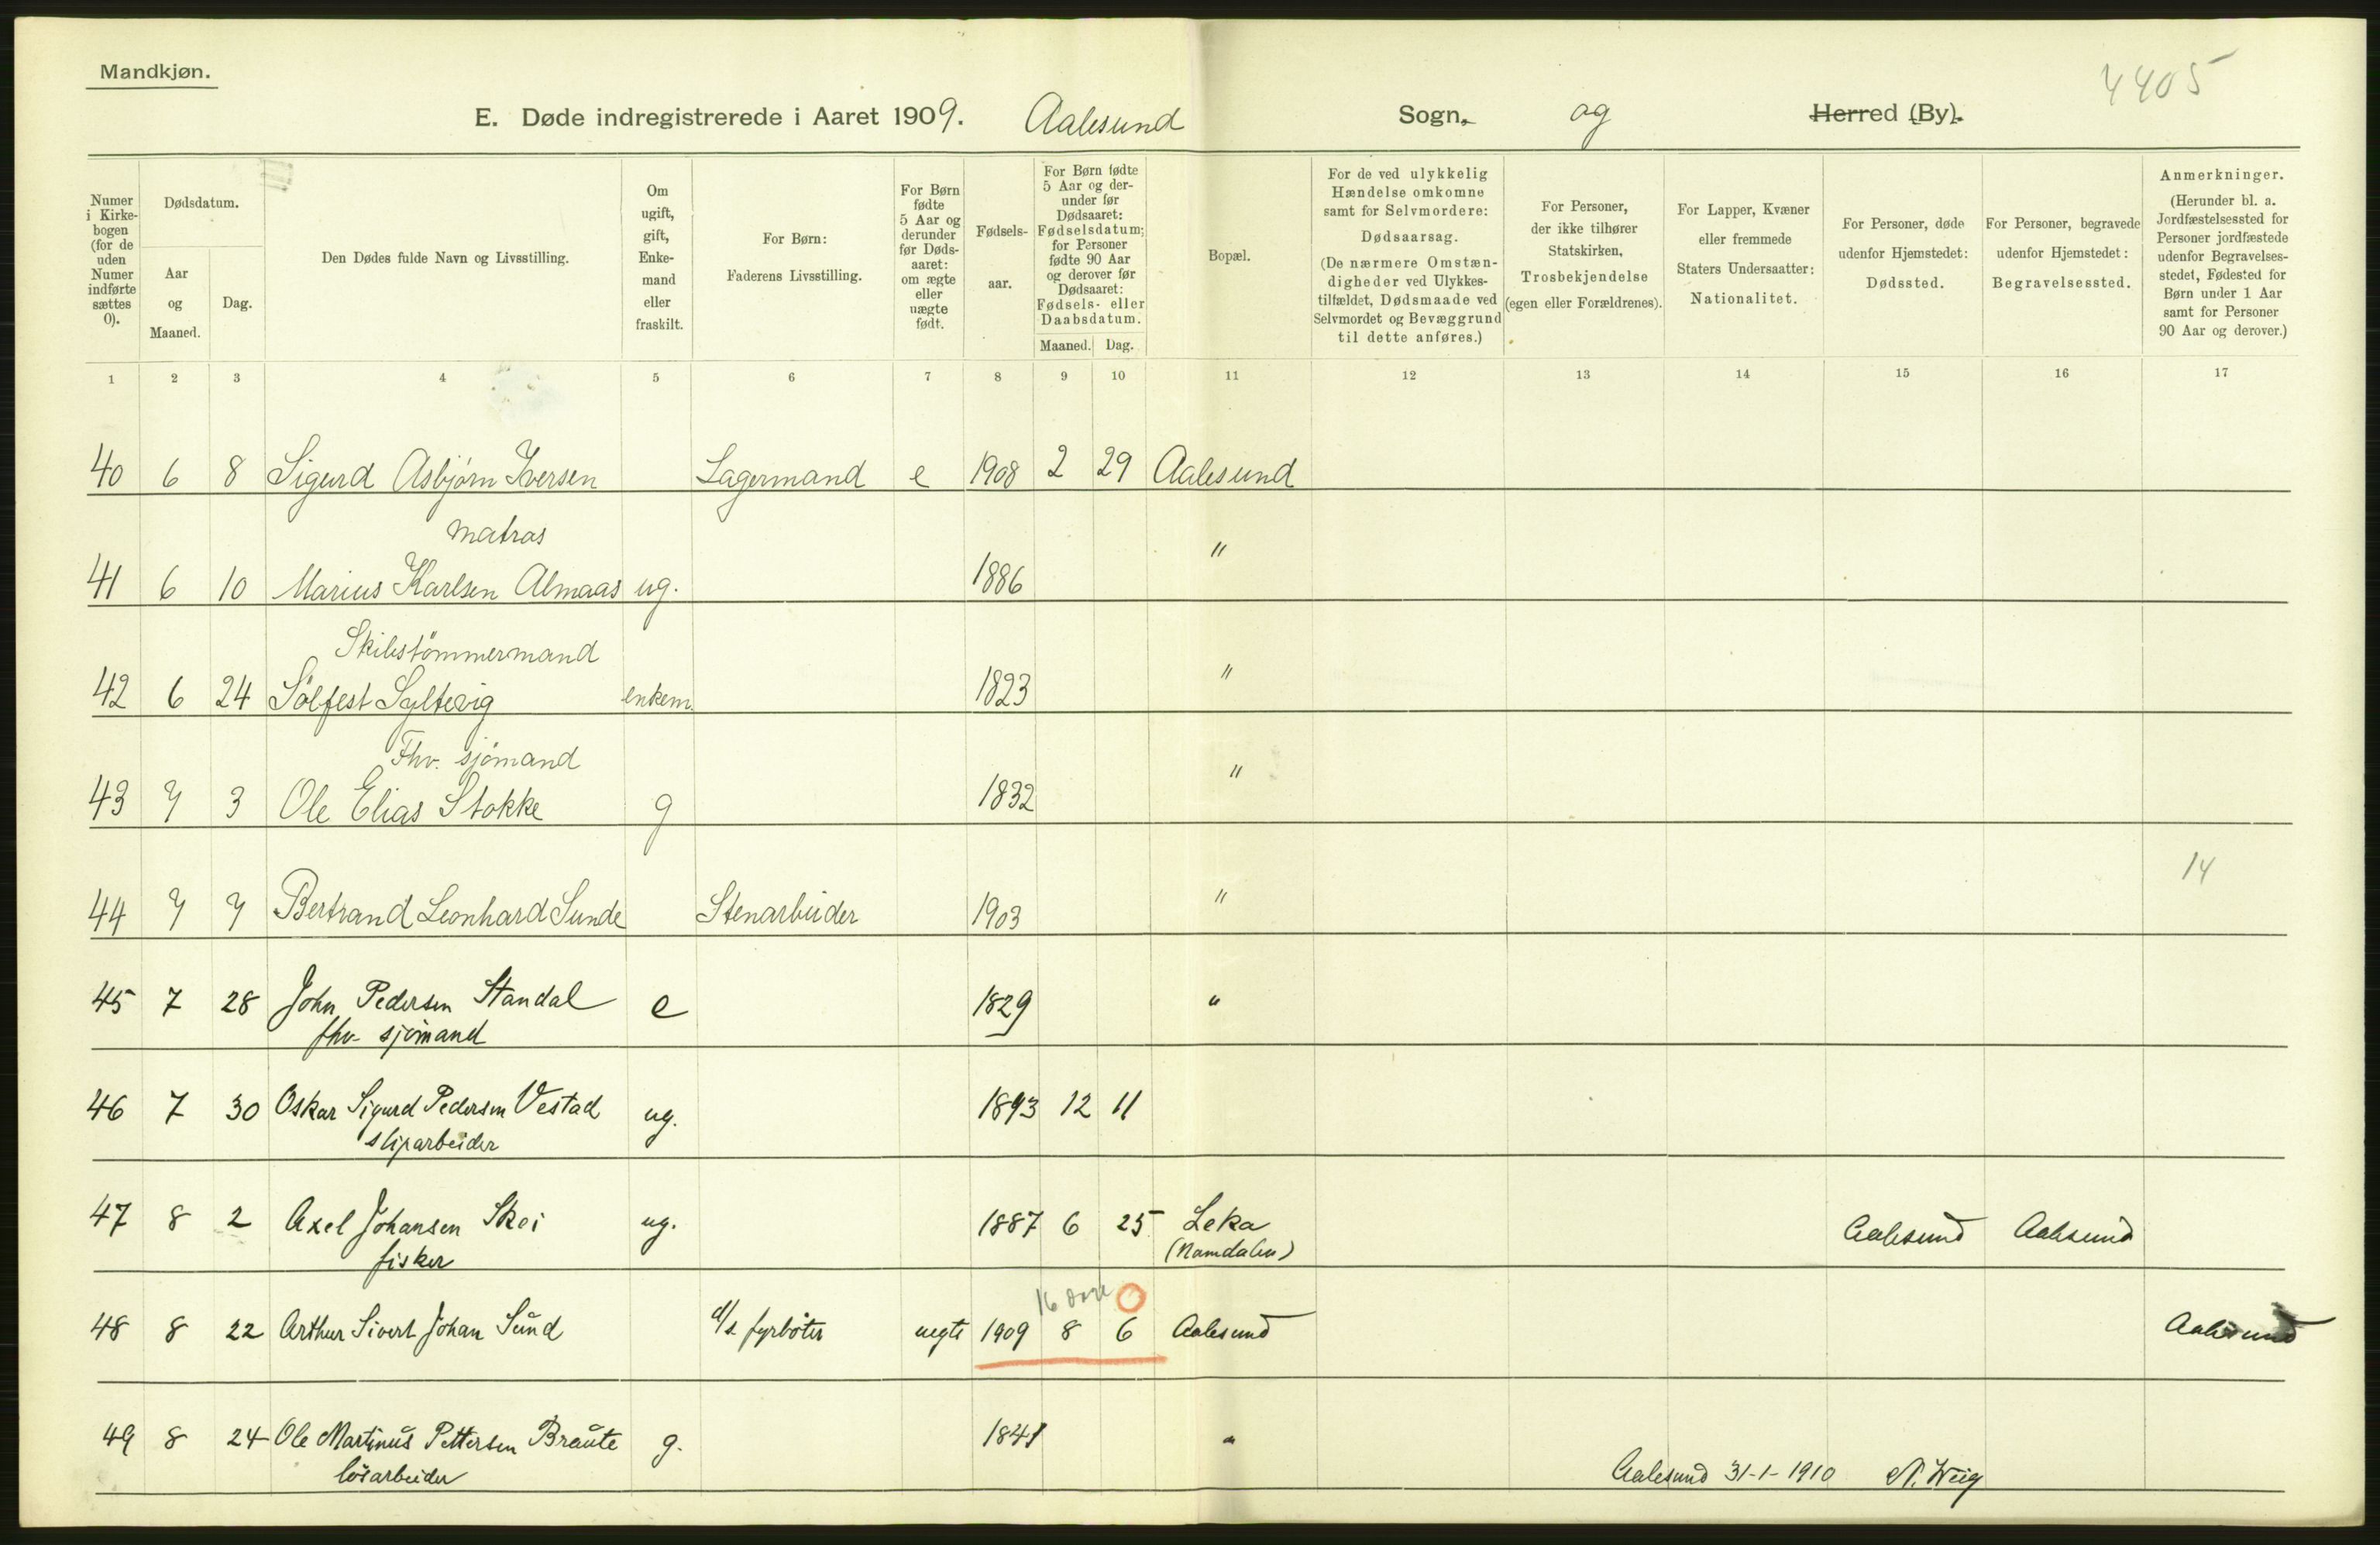 Mandkjøn.
4405
E. Døde indregistrerede i Aaret 1909. Aalesund Sogn. og Herred (By).
Numer i Kirkebogen (for de uden Numer indførte sættes 0).
Dødsdatum.
Aar og Maaned.
Dag.
Den Dødes fulde Navn og Livsstilling.
Om ugift, gift, Enkemand eller fraskilt.
For Børn: Faderens Livsstilling.
For Børn fødte 5 Aar og derunder før Dødsaaret: om ægte eller uægte født.
Fødselsaar.
For Børn fødte 5 Aar og derunder før Dødsaaret: Fødselsdatum; for Personer fødte 90 Aar og derover før Dødsaaret: Fødsels- eller Daabsdatum.
Maaned. Dag.
Bopæl.
For de ved ulykkelig Hændelse omkomne samt for Selvmordere: Dødsaarsag. (De nærmere Omstændigheder ved Ulykkestilfældet, Dødsmaade ved Selvmordet og Bevæggrund til dette anføres.)
For Personer, der ikke tilhører Statskirken, Trosbekjendelse (egen eller Forældrenes).
For Lapper, Kvæner eller fremmede Staters Undersaatter: Nationalitet.
For Personer, døde udenfor Hjemstedet: Dødssted.
For Personer, begravede udenfor Hjemstedet: Begravelsessted.
Anmerkninger. (Herunder bl. a. Jordfæstelsessted for Personer jordfæstede udenfor Begravelsesstedet, Fødested for Børn under 1 Aar samt for Personer 90 Aar og derover.)
1 2 3 4 5 6 7 8 9 10 11 12 13 14 15 16 17
40 6 8 Sigurd Asbjørn Iversen Lagermand e 1908 2 29 Aalesund
Matros
41 6 10 Marius Karlsen Almaas ug. 1886 "
Skibstømmermand
42 6 24 Sølfest Syltevig enkem. 1823 "
Fhv. sjömand
43 7 3 Ole Elias Stokke g 1832 "
14
44 7 7 Bertrand Leonhard Sunde Stenarbeider 1903 "
45 7 28 John Pedersen Standal e 1829 "
fhv. sjömand
46 7 30 Oskar Sigurd Pedersen Vestad ug. 1893 12 11
sliparbeider
47 8 2 Axel Johansen Skei ug. 1887 6 25 Leka Aalesund Aalesund
fisker (Namdalen)
48 8 22 Arthur Sivert Johan Sund d/s fyrbøter uegte 1909 8 6 Aalesund Aalesund
49 8 24 Ole Martinus Pettersen Braute g. 1841 "
løsarbeider
Aalesund 31-1-1910 N. Wiig